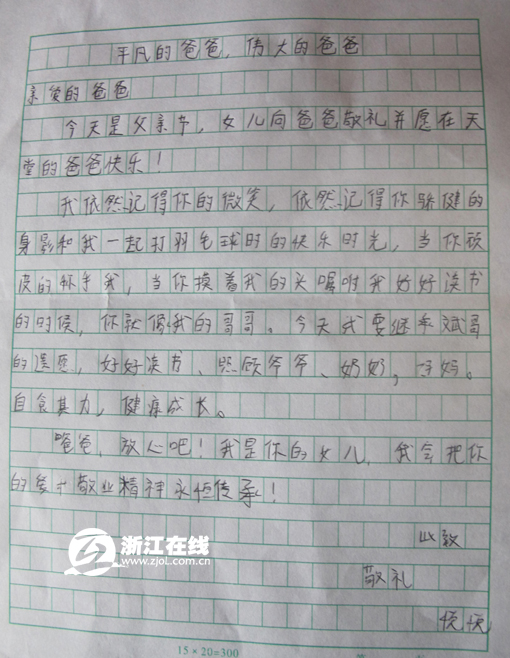 平凡的爸爸,伟大的爸爸
亲爱的爸爸
今天是父亲节,女儿向爸爸敬礼并愿在天
堂的爸爸快乐!
我依然记得你的微笑,依然记得你矫健的
身影和我一起打羽毛球时的快乐时光,当你
的怀手我,当你摸着我的头嘱咐我好好读书
的时侯,你就像我的哥哥。今天我要继承斌哥
的遗愿,好好读书、照顾爷爷、奶奶,妈妈。
自食其力,健康成长。
爸爸,放心吧!我是你的女儿,我会把你
的爱和敬业精神永恒传承!
此致
敬礼
悦悦
浙江在线
www.zjol.com.cn
15×20=300